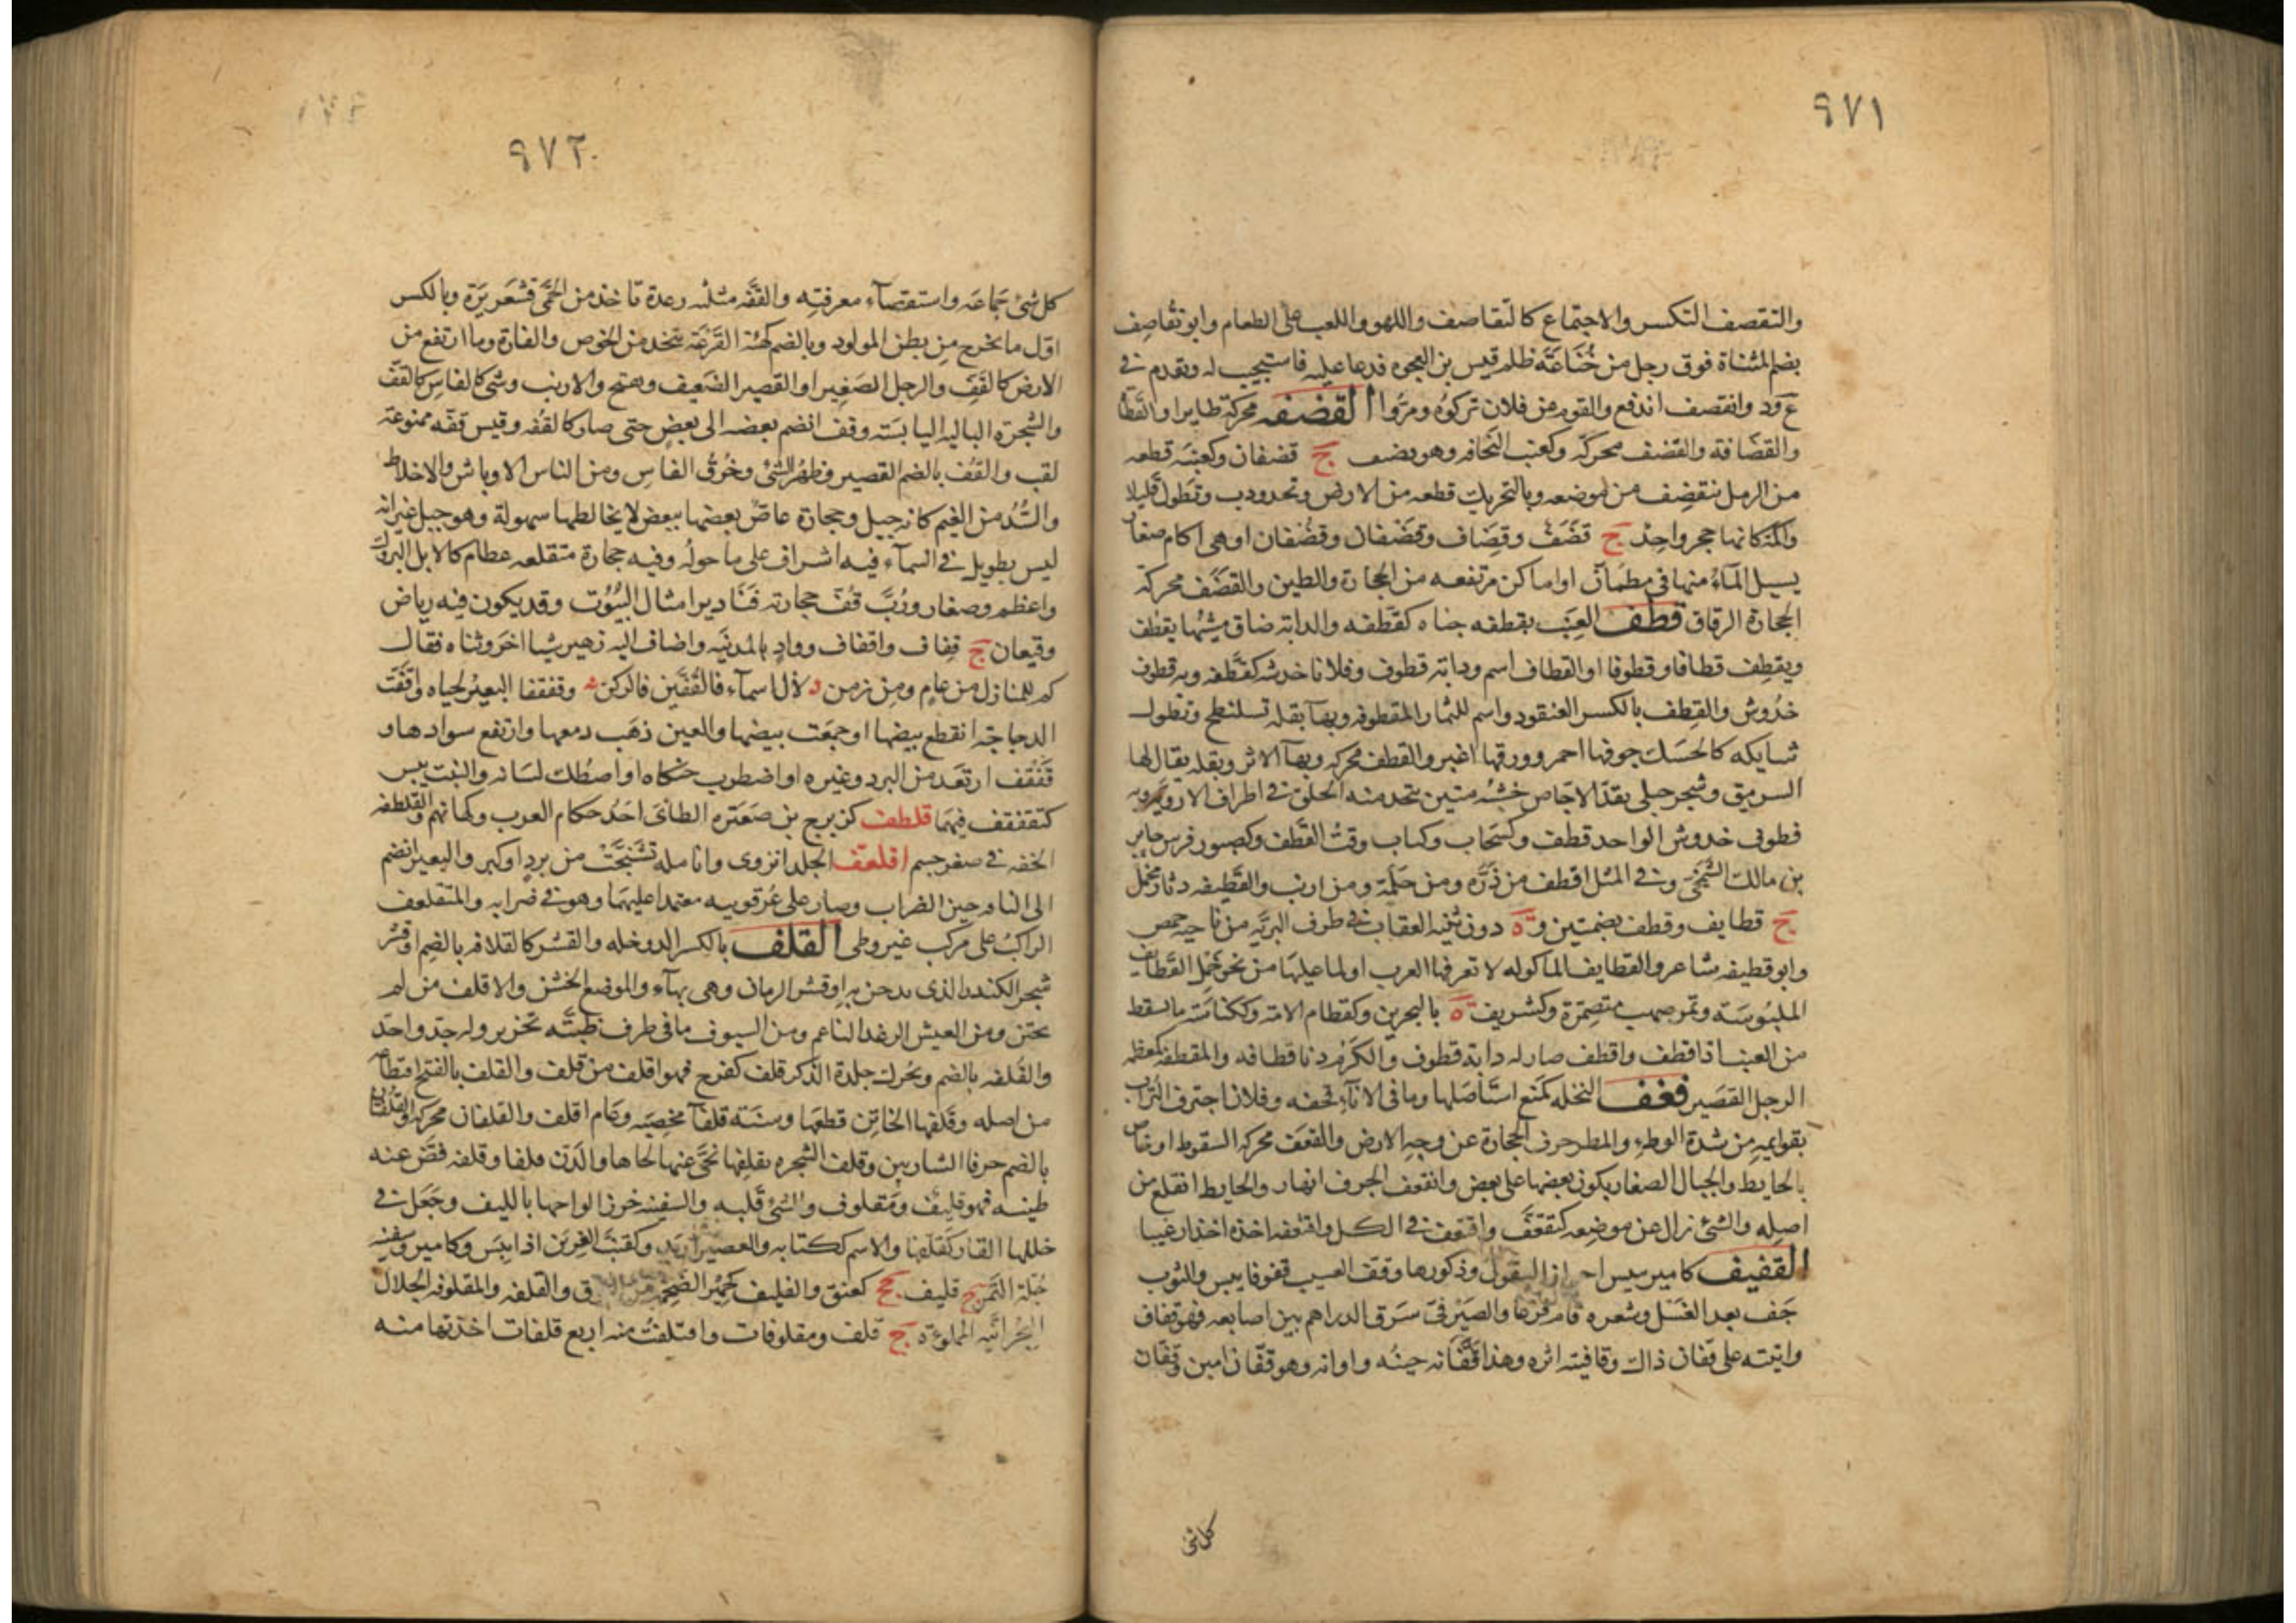 ٩٧١
والتقصف التكسر والاجتماع كالتقاصف واللهو واللعب على الطعام وابو تقاصف
بضم المثناة فوق رجل من خُنَاعَة ظلم قيس بن العجوه فدعا عليه فاستجيب له وتقدم في
ع ود وانقصف اندفع والقوم عن فلان تركوه ومرّوا القضفه محركة طاير او القطا
والقضافة والقضف محركة وكعنب النحافه وهو قضيف ج قضفان وكعنبة قطعه
من الرمل تنقضف من موضعه وبالتحريك قطعه من الارض وتحدودب وتطول قليلا
واكمة كانها حجر واحد ج قضف وقضاف وقضفان وقضفان او هي اكام صغار
يسيل الماء منها في مطمان او اماكن مرتفعه من الحجارة والطين والقضف محركة
الحجارة الرقاق قطف العنب يقطفه جناه كقطفه والدابة ضاق مشيها يقطف
ويقطف قطافا وقطوفا او القطاف اسم ودابة قطوف وفلانا خدشه كقطفه وبه قطوف
خدوش والقطف بالكسر العنقود واسم للثمار المقطوفه وبهآ بقله تسلنطح وتطول
شايكه كالحسك جوفها احمر وورقها اغبر والقطف محركه وبهآ الاثر وبقله يقال لها
السرمق وشجر جبلي بقدّ الاجاص خشبه متين يتخذ منه الحلق في اطراف الاروية وبه
قطوف خدوش الواحد قطف وكسحاب وكتاب وقت القطف وكصبور فرس جابر
بن مالك الشمخي وفي المثل اقطف من ذرّه ومن حلمة ومن ارنب والقطيفه دثار مخمل
ج قطايف وقطف بضمتين وة ه دون ثنية العقاب في طرف البريه من ناحية حمص
وابو قطيفه شاعر والقطايف الماكوله لا تعرفها العرب او لما عليها من نحو خمل القطايف
الملبوسة وتمر صهب متضمّرة وكشريف ة ه بالبحرين وكقطام الامة وككناسة ما يسقط
من العنب اذا قطف واقطف صار له دابة قطوف والكرم دنا قطافه والمقطفه كمعظمه
الرجل القصير قعف النخله كمنع استأصلها وما في الاناء قحفه وفلانا اجترف التراب
بقوايمه من شدة الوطء والمطر جرف الحجارة عن وجه الارض والقعف محركه السقوط او خاص
بالحايط والجبال الصغار يكون بعضها على بعض وانقعف الجرف انهار والحايط انقلع من
اصله والشئ زال عن موضعه كتقعّف واقتعف في الكل واقتعفه اخذه اخذا رغيبا
القفيف كامير يبيس احرار البقول وذكورها وقف العشب قفوفا يبس والثوب
جف بعد الغسل وشعره قام فزعا والصيرفي سرق الدراهم بين اصابعه فهو قفاف
واتيته على قفان ذاك وقافيته اثره وهذا قفّانه حينه واوانه وهو قفّان امين وقفان
كل شئ
٩٧٢
كل شئ جماعه واستقصاء معرفته والقفّه مثلثه رعدة تاخذ من الحمّى وقشعريرة وبالكسر
اوّل ما يخرج من بطن المولود وبالضم كهيئة القرعة تتخذ من الخوص والفارة وما ارتفع من
الارض كالقف والرجل الصغير او القصير الضعيف ويفتح والارنب وشئ كالفاس كالقف
والشجرة الباليه اليابسة وقف انضم بعضه الى بعض حتى صار كالقفه وقيس قفه ممنوعة
لقب والقف بالضم القصير وظهر الشئ وخُرقُ الفاس ومن الناس الاوباش والاخلاط
والسُّد من الغيم كانه جبل وحجارة غاصّ بعضها ببعض لا يخالطها سهولة وهو جبل غير انه
ليس بطويل في السمآء فيه اشراف على ما حوله وفيه حجارة متقلعه عظام كالابل البروك
واعظم وصغار ورُبّ قُفّ حجارته فنادير امثال البيوت وقد يكون فيه رياض
وقيعان ج قفاف واقفاف وواد بالمدنيه واضاف اليه زهير شيا اخر وثناه فقال
كم للمنازل من عام ومن زمن لآل اسماء فالقفين فالركن وقفقفا البعير لحياه واقفّت
الدجاجة انقطع بيضها او جمعت بيضها والعين ذهب دمعها وارتفع سوادها و
قفقف ارتعد من البرد وغيره او اضطرب حنكاه او اصطك لسانه والنبت يبس
كتقفقف فيهما قلطف كزبرج بن صعترة الطائي احد حكام العرب وكهانهم والقلطفه
الخفه في صغر جسم اقلعفّ الجلد انزوى وانامله تشنجت من برد او كبر والبعير انضم
الى الناقه حين الضراب وصار على عرقوبيه معتمدا عليهما وهو في ضرابه والمتقلعف
الراكب على مركب غير وطي القلف بالكسر الدوخله والقشر كالقلافه بالضم او قشر
شجر الكندر الذي يدخن به او قشر الرمان وهي بهآء والموضع الخشن والاقلف من لم
يختن ومن العيش الرغد الناعم ومن السيوف ما في طرف ظبته تحزيز وله حدّ واحد
والقلفه بالضم ويحرك جلدة الذكر قلف كفرح فهو اقلف من قلف والقلف بالفتح اقتطاعها
من اصله وقلفها الخاتن قطعها وسنة قلفآ مخصبه وعام اقلف والقلفان محركه والقلفتان
بالضم حرفا الشاربين وقلف الشجره يقلفها نحّى عنها لحاها والدّن قلفا وقلفه فضّ عنه
طينه فهو قليف ومقلوف والشئ قلبه والسفينه خرز الواحها بالليف وجعل في
خللها القار كقلّفها والاسم ككتابه والعصير ازبد وكقنب الغرين اذا يبس وكامير وسفينه
جلة التمر ج قليف جج كعنق والقليف كحمير الضخمه من النوق والقلفه والمقلوفه الجلال
البحرانيه المملوءه ج قلف ومقلوفات واقتلفت منه اربع قلفات اخذتها منه